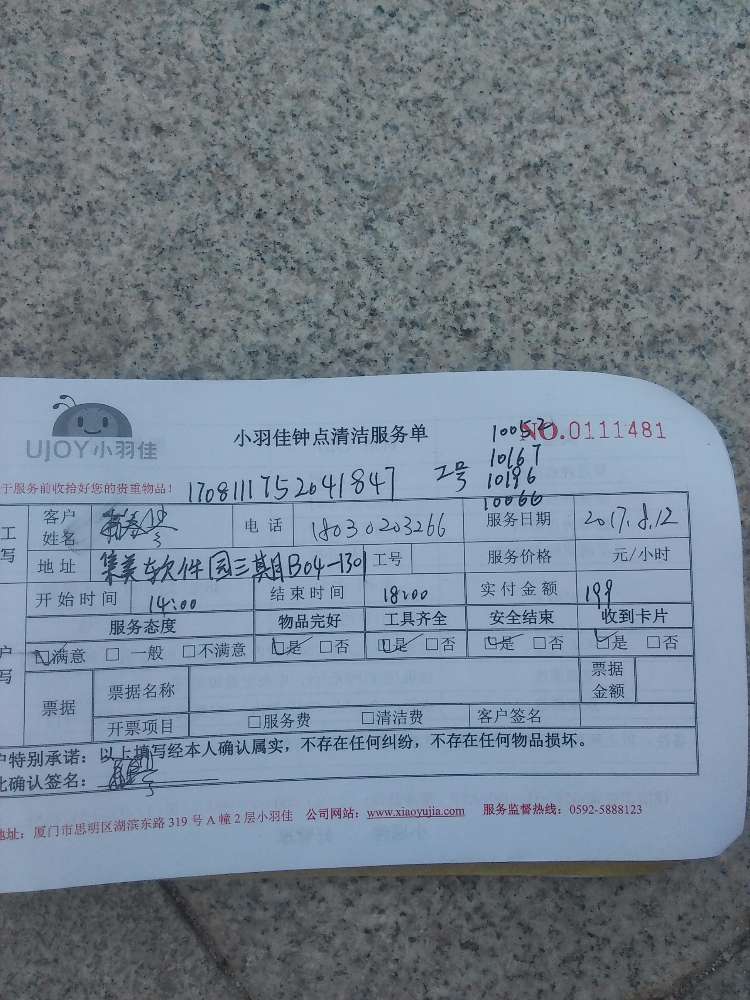 UJOY小羽佳
小羽佳钟点清洁服务单
NO.0111481
于服务前收拾好您的贵重物品！
1708111752041847
工号
10052
10167
10196
10066
工 客户姓名 电 话 18030203266 服务日期 2017.8.12
写 地 址 集美软件园三期B04-1301 工号 服务价格 元/小时
开 始 时 间 14:00 结 束 时 间 18:00 实 付 金 额 199
服务态度 物品完好 工具齐全 安全结束 收到卡片
户 ☑满意 □ 一般 □不满意 ☑是 □否 ☑是 □否 ☑是 □否 ☑是 □否
写 票据 票据名称 票据金额
开票项目 □服务费 □清洁费 客户签名
户特别承诺：以上填写经本人确认属实，不存在任何纠纷，不存在任何物品损坏。
此确认签名：
地址：厦门市思明区湖滨东路 319 号 A 幢 2 层小羽佳 公司网站：www.xiaoyujia.com 服务监督热线：0592-5888123